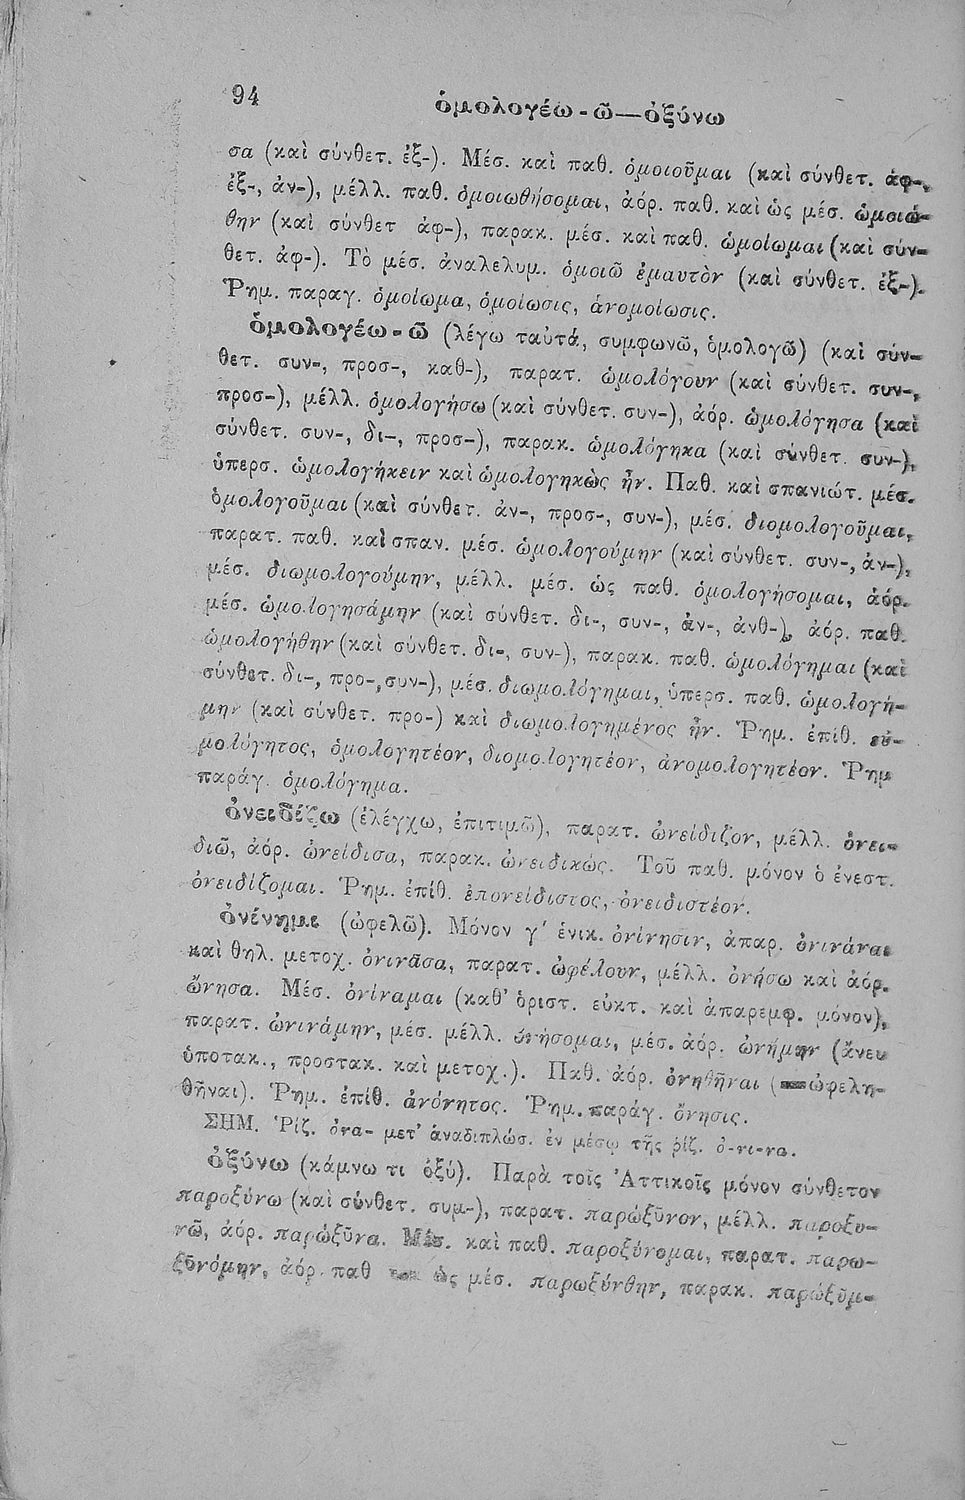 94
ὁμολογέω-ῶ—ὀξύνω
σα (καὶ σύνθετ. ἐξ-). Μέσ. καὶ παθ. ὁμοιοῦμαι (καὶ σύνθετ. ἀφ-,
ἐξ-, ἀν-), μέλλ. παθ. ὁμοιωθήσομαι, ἀόρ. παθ. καὶ ὡς μέσ. ὡμοιώ-
θην (καὶ σύνθετ ἀφ-), παρακ. μέσ. καὶ παθ. ὡμοίωμαι (καὶ σύν-
θετ. ἀφ-). Τὸ μέσ. ἀναλελυμ. ὁμοιῶ ἐμαυτὸν (καὶ σύνθετ. ἐξ-).
Ῥημ. παραγ. ὁμοίωμα, ὁμοίωσις, ἀνομοίωσις.
ὁμολογέω-ῶ (λέγω ταὐτά, συμφωνῶ, ὁμολογῶ) (καὶ σύν-
θετ. συν-, προσ-, καθ-), παρατ. ὡμολόγουν (καὶ σύνθετ. συν-,
προσ-), μέλλ. ὁμολογήσω (καὶ σύνθετ. συν-), ἀόρ. ὡμολόγησα (καὶ
σύνθετ. συν-, δι-, προσ-), παρακ. ὡμολόγηκα (καὶ σύνθετ. συν-),
ὑπερσ. ὡμολογήκειν καὶ ὡμολογηκὼς ἦν. Παθ. καὶ σπανιώτ. μέσ.
ὁμολογοῦμαι (καὶ σύνθετ. ἀν-, προσ-, συν-), μέσ. διομολογοῦμαι,
παρατ. παθ. καὶ σπαν. μέσ. ὡμολογούμην (καὶ σύνθετ. συν-, ἀν-),
μέσ. διωμολογούμην, μέλλ. μέσ. ὡς παθ. ὁμολογήσομαι, ἀόρ.
μέσ. ὡμολογησάμην (καὶ σύνθετ. δι-, συν-, ἀν-, ἀνθ-), ἀόρ. παθ.
ὡμολογήθην (καὶ σύνθετ. δι-, συν-), παρακ. παθ. ὡμολόγημαι (καὶ
σύνθετ. δι-, προ-, συν-), μέσ. διωμολόγημαι, ὑπερσ. παθ. ὡμολογή-
μην (καὶ σύνθετ. προ-) καὶ διωμολογημένος ἦν. Ῥημ. ἐπίθ. εὐ-
μολόγητος, ὁμολογητέον, διομολογητέον, ἀνομολογητέον. Ῥημ
παράγ. ὁμολόγημα.
ὀνειδίζω (ἐλέγχω, ἐπιτιμῶ), παρατ. ὠνείδιζον, μέλλ. ὀνει-
διῶ, ἀόρ. ὠνείδισα, παρακ. ὠνειδικώς. Τοῦ παθ. μόνον ὁ ἐνεστ.
ὀνειδίζομαι. Ῥημ. ἐπίθ. ἐπονείδιστος, ὀνειδιστέον.
ὀνίνημι (ὠφελῶ). Μόνον γ′ ἑνικ. ὀνίνησιν, ἀπαρ. ὀνινάναι
καὶ θηλ. μετοχ. ὀνινᾶσα, παρατ. ὠφέλουν, μέλλ. ὀνήσω καὶ ἀόρ.
ὤνησα. Μέσ. ὀνίναμαι (καθ' ὁριστ. εὐκτ. καὶ ἀπαρεμφ. μόνον),
παρατ. ὠνινάμην, μέσ. μέλλ. ὀνήσομαι, μέσ. ἀόρ. ὠνήμην (ἄνευ
ὑποτακ., προστακ. καὶ μετοχ.). Παθ. ἀόρ. ὀνηθῆναι (=ὠφελη-
θῆναι). Ῥημ. ἐπίθ. ἀνόνητος. Ῥημ. παράγ. ὄνησις.
ΣΗΜ. Ῥίζ. ὀνα- μετ' ἀναδιπλώσ. ἐν μέσῳ τῆς ῥίζ. ὀ-νι-να.
ὀξύνω (κάμνω τι ὀξύ). Παρὰ τοῖς Ἀττικοῖς μόνον σύνθετον
παροξύνω (καὶ σύνθετ. συμ-), παρατ. παρώξῡνον, μέλλ. παροξυ-
νῶ, ἀόρ. παρώξῡνα. Μέσ. καὶ παθ. παροξύνομαι, παρατ. παρω-
ξῡνόμην, ἀόρ. παθ ὡς μέσ. παρωξύνθην, παρακ. παρώξῡμ-